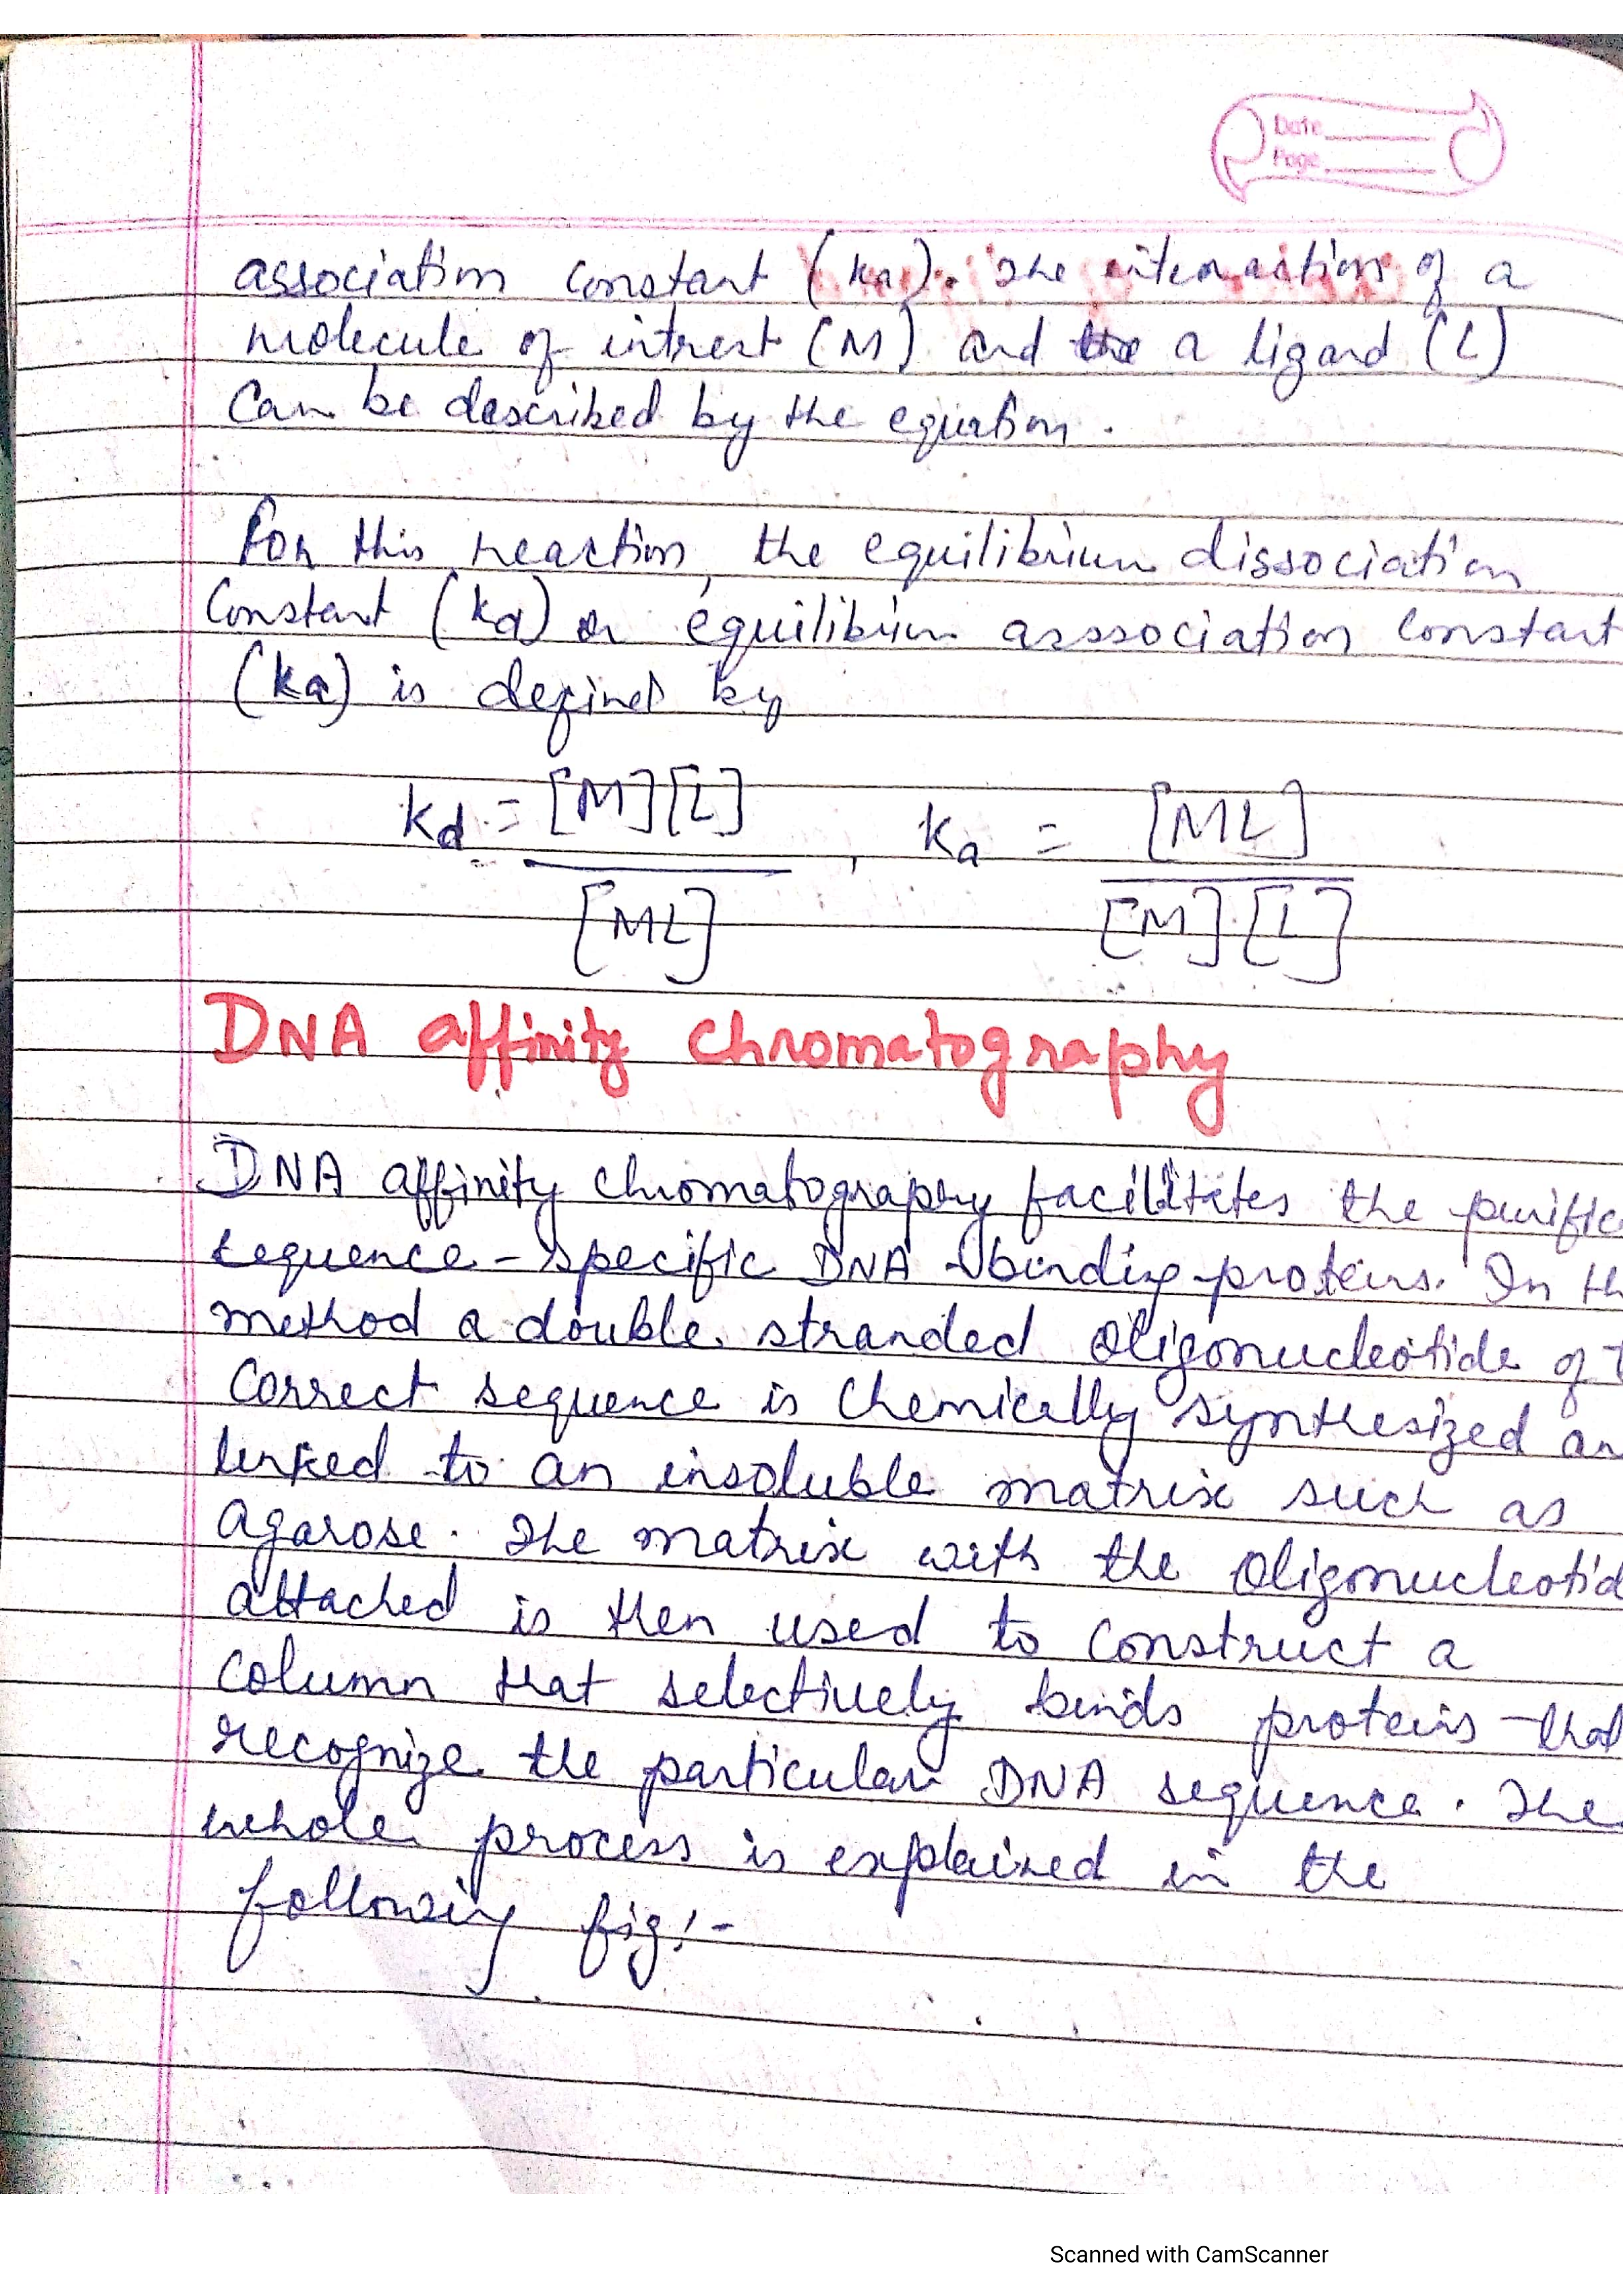 Date
Page
association constant (ka). The interaction of a
molecule of intrest (M) and the a ligand (L)
Can be described by the equation.
For this reaction, the equilibrium dissociation
Constant (kd) or equilibrium asssociation constant
(ka) is defined by
kd = [M][L] / [ML] , ka = [ML] / [M].[L]
DNA affinity chromatography
DNA affinity chromatography facilitates the purific
sequence-specific DNA binding proteins. In th
method a double stranded oligonucleotide of t
Correct sequence is chemically synthesized an
linked to an insoluble matrix such as
agarose. The matrix with the oligonucleotid
attached is then used to construct a
column that selectively binds proteins that
recognize the particular DNA sequence. The
whole process is explained in the
following fig:-
Scanned with CamScanner